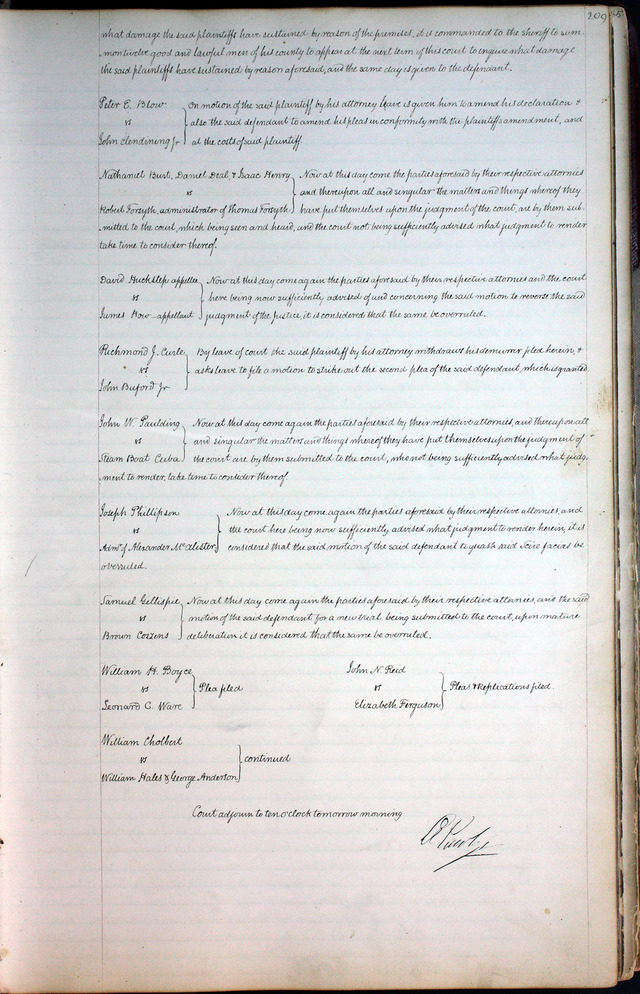 209
what damage the said plaintiffs have sustained by reason of the premises, it is commanded to the sheriff to sum-
mon twelve good and lawful men of his county to appear at the next term of this court to enquire what damage
the said plaintiffs have sustained by reason aforesaid, and the same day is given to the defendant.
Peter E. Blow
vs
John Clendining Jr
On motion of the said plaintiff by his attorney leave is given him to amend his declaration &
also the said defendant to amend his pleas in conformity with the plaintiff's amendment, and
at the costs of said plaintiff.
Nathaniel Burt, Daniel Deal, & Isaac Henry
vs
Robert Forsyth, administrator of Thomas Forsyth
Now at this day come the parties aforesaid by their respective attornies
and thereupon all and singular the matters and things whereof they
have put themselves upon the judgment of the court, are by them sub-
mitted to the court, which being seen and heard, and the court not being sufficiently advised what judgment to render
take time to consider thereof.
David Huckstep appellee
vs
James How - appellant
Now at this day come again the parties aforesaid by their respective attornies and the court
here being now sufficiently advised of and concerning the said motion to reverse the said
judgment of the Justice, it is considered that the same be overruled.
Richmond J. Curle
vs
John Buford Jr
By leave of court the said plaintiff by his attorney withdraws his demurrer filed herein, &
asks leave to file a motion to strike out the second plea of the said defendant, which is granted.
John W. Paulding
vs
Steam Boat Cuba
Now at this day come again the parties aforesaid by their respective attornies, and thereupon all
and singular the matters and things whereof they have put themselves upon the judgment of
the court are by them submitted to the court, who not being sufficiently advised what judg-
ment to render, take time to consider thereof.
Joseph Phillipson
vs
Admr of Alexander McAlister
Now at this day come again the parties aforesaid by their respective attornies, and
the court here being now sufficiently advised what judgment to render herein, it is
considered that the said motion of the said defendant to quash said Scire facias be
overruled.
Samuel Gillispie
vs
Brown Cozens
Now at this day come again the parties aforesaid by their respective attornies, and the said
motion of the said defendant for a new trial being submitted to the court, upon mature
deliberation it is considered that the same be overruled.
William H. Boyce
vs
Leonard C. Ware
Plea filed
John N. Reid
vs
Elizabeth Ferguson
Pleas & Replications filed.
William Cholbert
vs
William Hales & George Anderson
continued
Court adjourn to ten o'clock tomorrow morning